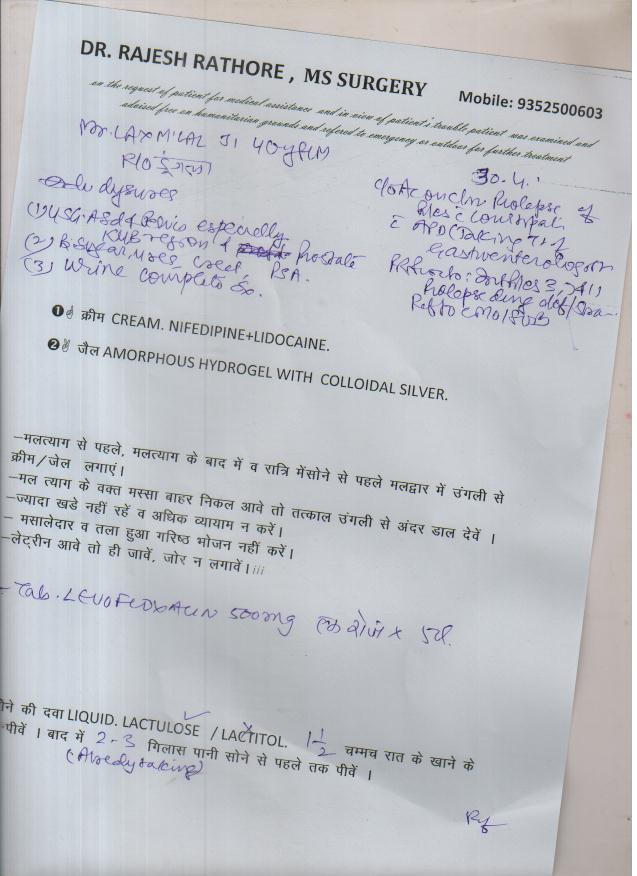 DR. RAJESH RATHORE , MS SURGERY
Mobile: 9352500603
on the request of patient for medical assistance and in view of patient's trouble, patient was examined and
advised free on humanitarian grounds and refered to emergency or outdoor for further treatment
Mr. LAXMILAL JI 40yr/M
R/O डूंगला
30.4.
dysurea
(1) USG. Abd & Pelvis especially
KUB region & Prostate
(2) PSA.
(3) Urine complete Ex.
c/o Prolapse of
Piles c Constipati
c APD (Taking T/t of
Gastroenterologist
Piles 3, 7, 11
Prolapse during def/
❶ क्रीम CREAM. NIFEDIPINE+LIDOCAINE.
❷ जैल AMORPHOUS HYDROGEL WITH COLLOIDAL SILVER.
–मलत्याग से पहले, मलत्याग के बाद में व रात्रि मेंसोने से पहले मलद्वार में उंगली से
क्रीम/जेल लगाएं।
–मल त्याग के वक्त मस्सा बाहर निकल आवे तो तत्काल उंगली से अंदर डाल देवें ।
–ज्यादा खडे नहीं रहें व अधिक व्यायाम न करें।
– मसालेदार व तला हुआ गरिष्ठ भोजन नहीं करें।
–लेट्रीन आवे तो ही जावें, जोर न लगावें।iii
– Tab. LEVOFLOXACIN 500mg एक रोज x 5दि.
ीने की दवा LIQUID. LACTULOSE / LACTITOL. 1 1/2 चम्मच रात के खाने के
पीवें । बाद में 2-3 गिलास पानी सोने से पहले तक पीवें ।
(Alredy taking)